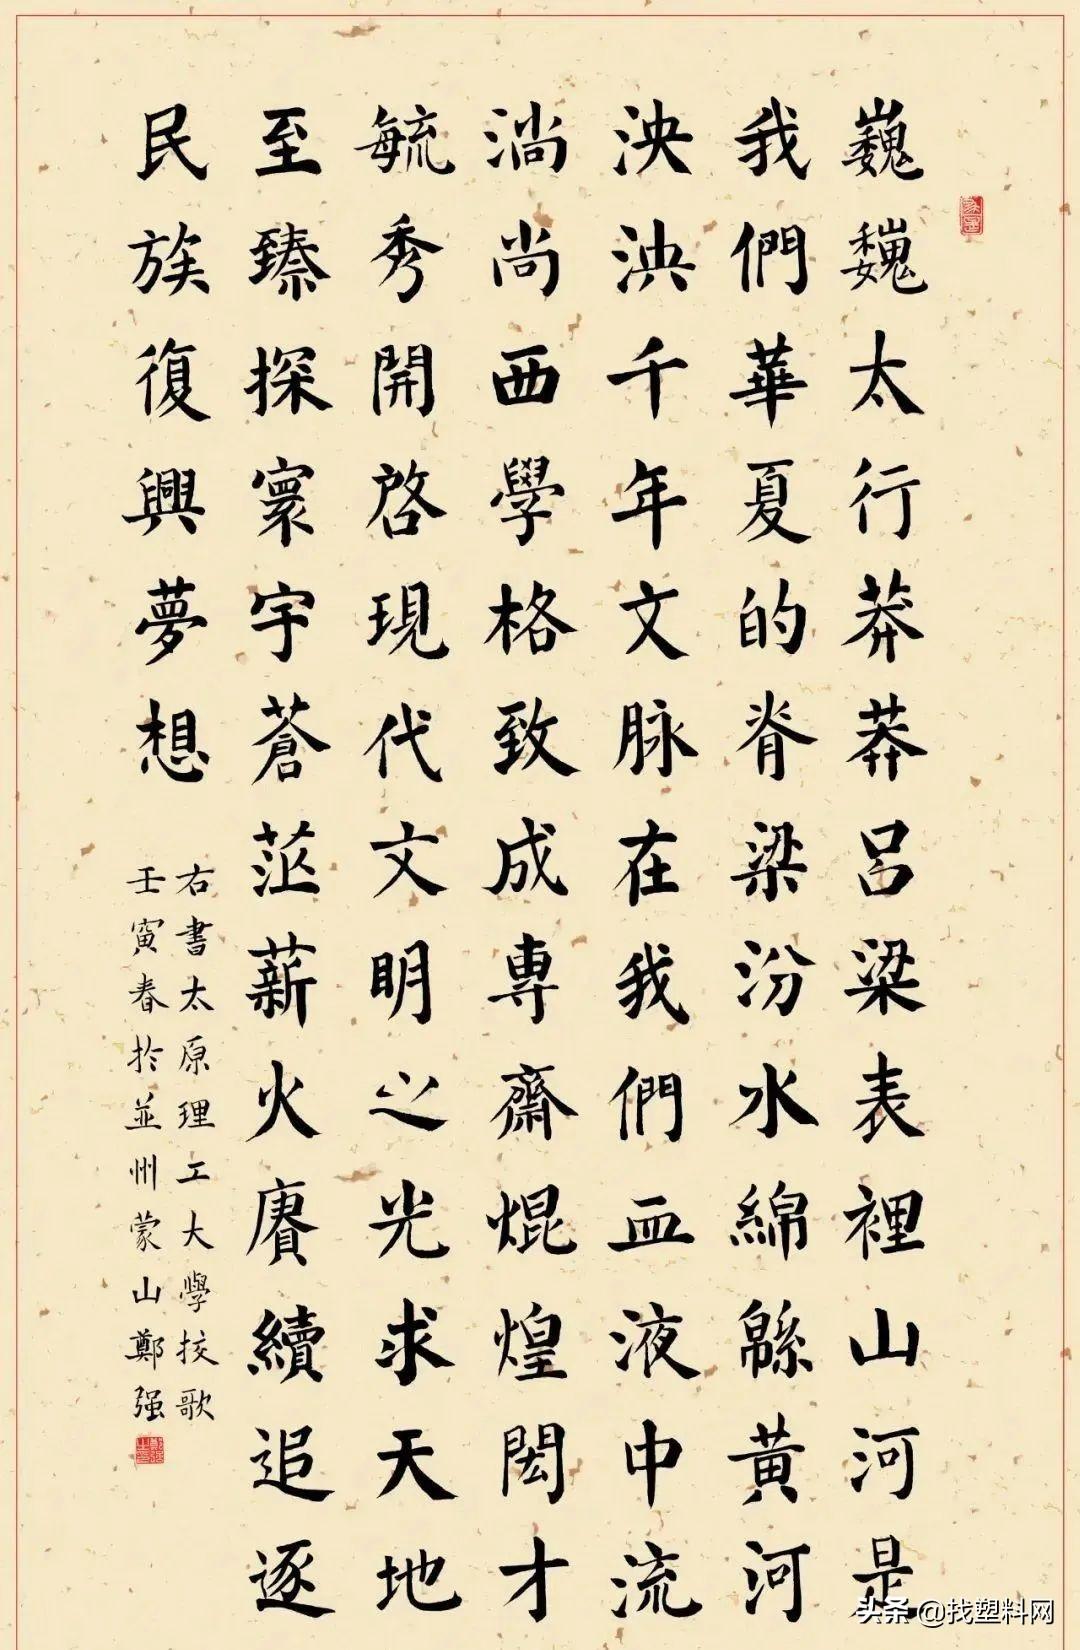 巍巍太行莽莽呂梁表裡山河是
我們華夏的脊梁汾水綿緜黃河
泱泱千年文脉在我們血液中流
淌尚西學格致成專齋焜煌閎才
毓秀開啓現代文明之光求天地
至臻探寰宇蒼茫薪火賡續追逐
民族復興夢想
右書太原理工大學校歌
壬寅春於並州蒙山鄭强
头条 @找塑料网